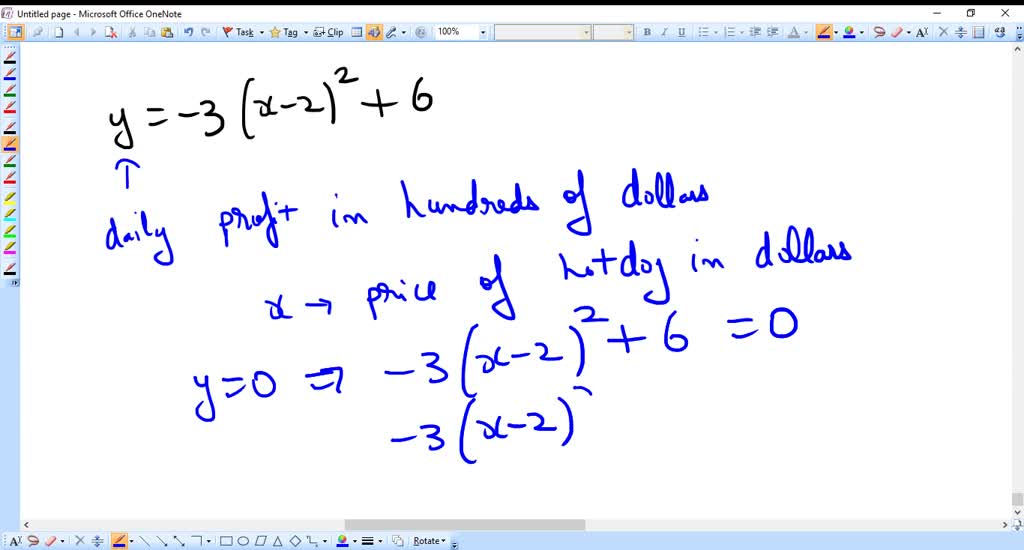 Untitled page - Microsoft Office OneNote
Task Tag Clip 100% B I U A
y = -3 (x-2)² + 6
↑
daily profit in hundreds of dollars
x → price of hotdog in dollars
y=0 ⇒ -3 (x-2)² + 6 = 0
-3 (x-2)
Rotate